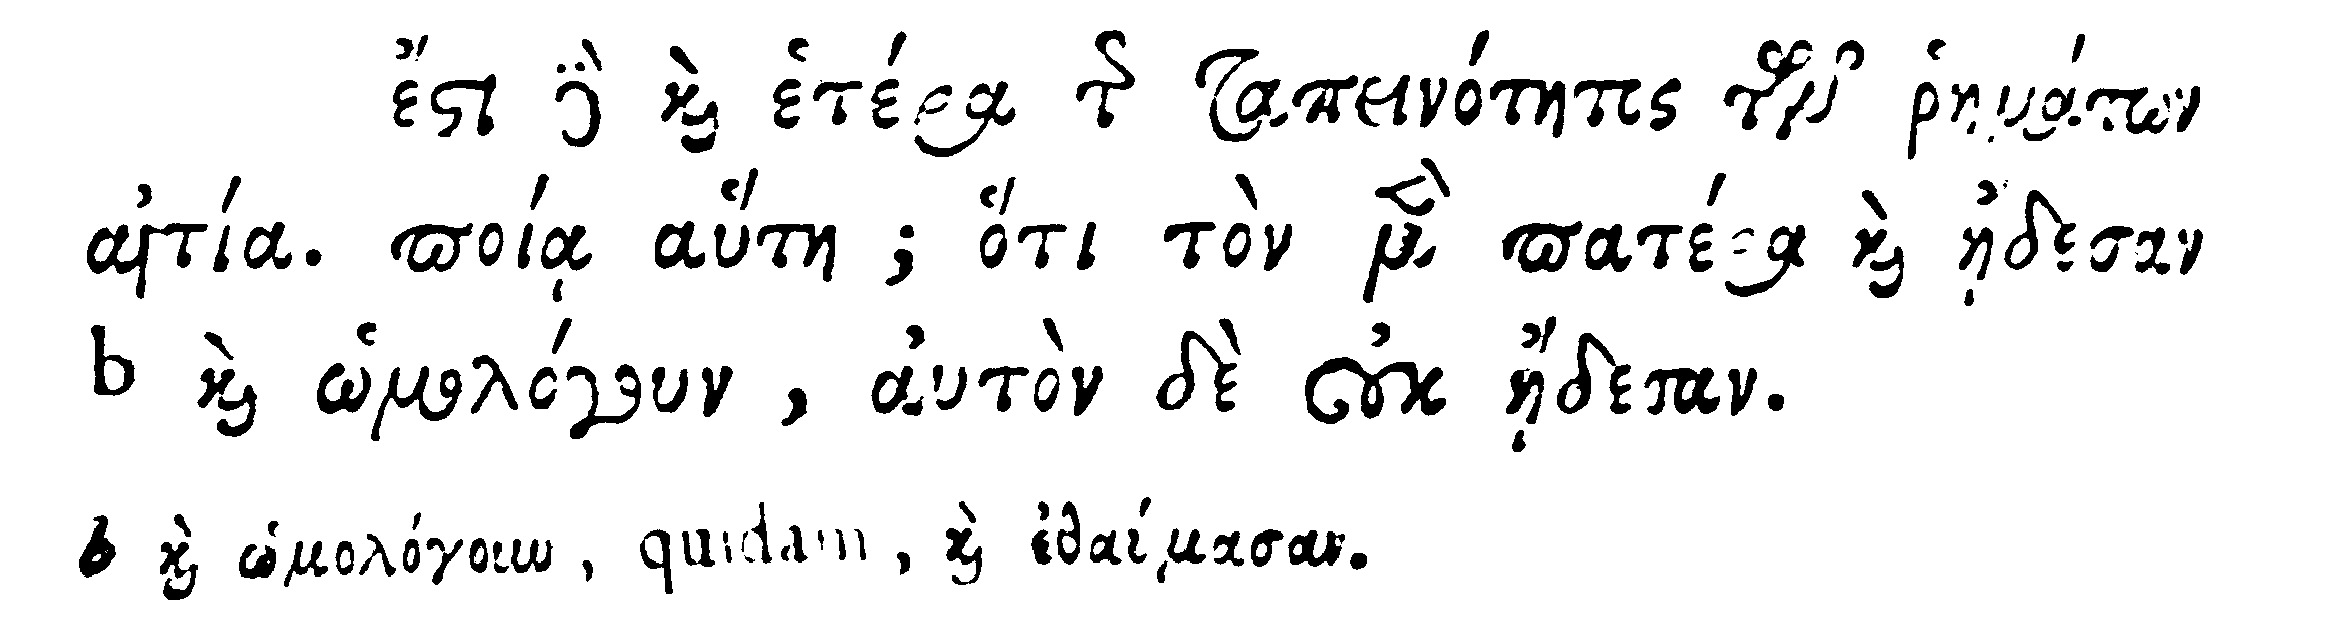 ἔστι γὰρ καὶ ἑτέρα τῆς ταπεινότητος τῶν ῥημάτων
αἰτία. ποία αὕτη; ὅτι τὸν μὲν πατέρα καὶ ᾔδεσαν
b καὶ ὡμολόγουν, αὐτὸν δὲ οὐκ ᾔδεσαν.
b καὶ ὡμολόγουν, quidam, καὶ ἐθαύμασαν.